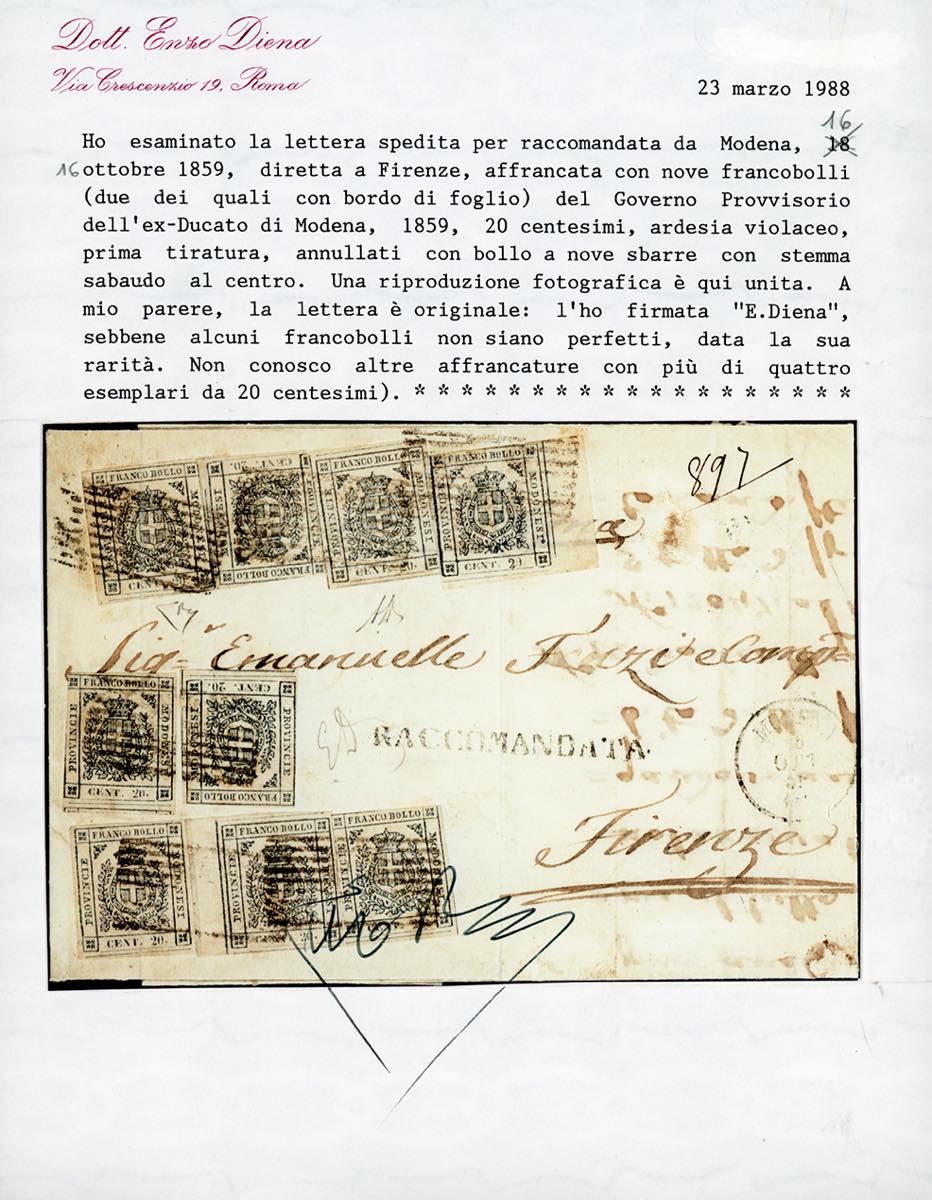 Dott. Enzo Diena
Via Crescenzio 19, Roma
23 marzo 1988
16
Ho esaminato la lettera spedita per raccomandata da Modena, 18
16 ottobre 1859, diretta a Firenze, affrancata con nove francobolli
(due dei quali con bordo di foglio) del Governo Provvisorio
dell'ex-Ducato di Modena, 1859, 20 centesimi, ardesia violaceo,
prima tiratura, annullati con bollo a nove sbarre con stemma
sabaudo al centro. Una riproduzione fotografica è qui unita. A
mio parere, la lettera è originale: l'ho firmata "E.Diena",
sebbene alcuni francobolli non siano perfetti, data la sua
rarità. Non conosco altre affrancature con più di quattro
esemplari da 20 centesimi). * * * * * * * * * * * * * * * * * * *
897
FRANCO BOLLO PROVINCIE MODONESI CENT. 20.
FRANCO BOLLO PROVINCIE MODONESI CENT. 20.
FRANCO BOLLO PROVINCIE MODONESI CENT. 20.
FRANCO BOLLO PROVINCIE MODONESI CENT. 20.
Sigr Emanuelle Fenzi e Comp
FRANCO BOLLO PROVINCIE MODONESI CENT. 20.
FRANCO BOLLO PROVINCIE MODONESI CENT. 20.
RACCOMANDATA
OTT
Firenze
FRANCO BOLLO PROVINCIE MODONESI CENT. 20.
FRANCO BOLLO PROVINCIE 20.
FRANCO BOLLO PROVINCIE